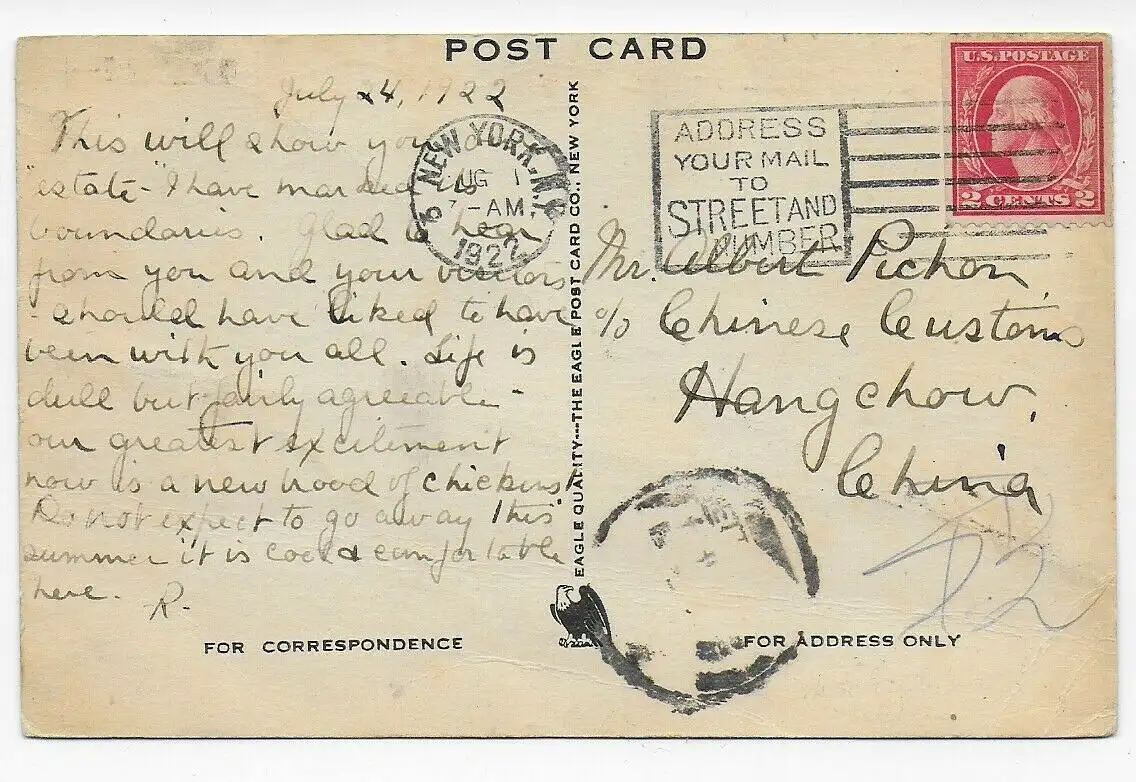 POST CARD
July 24, 1922
This will show you
"estate" - I have marked its
boundaries. Glad to hear
from you and your visitors
- should have liked to have
been with you all. Life is
dull but fairly agreeable -
our greatest excitement
now is a new brood of chickens.
Do not expect to go away this
summer it is cool & comfortable
here. R.
FOR CORRESPONDENCE
NEW YORK, N.Y.
AUG 1
-AM
1922
EAGLE QUALITY---THE EAGLE POST CARD CO., NEW YORK
ADDRESS
YOUR MAIL
TO
STREET AND
NUMBER
U.S. POSTAGE
2 CENTS 2
Mr. Albert Pichon
c/o Chinese Customs
Hangchow,
China
FOR ADDRESS ONLY